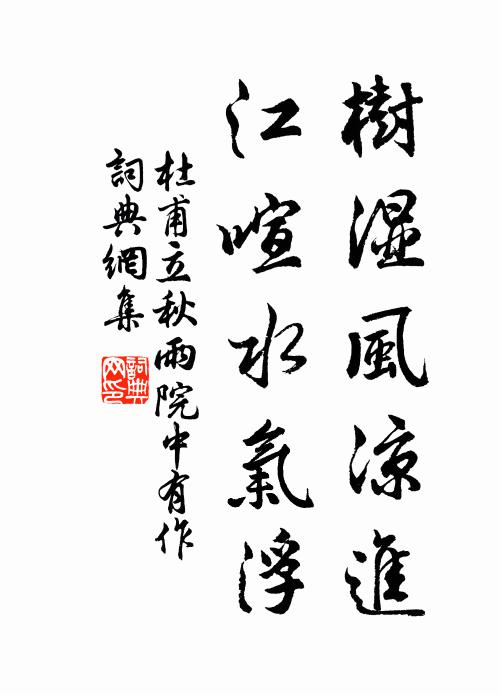 樹湿風涼進
江喧水氣浮
杜甫立秋雨院中有作
詞典網集
詞典
网印